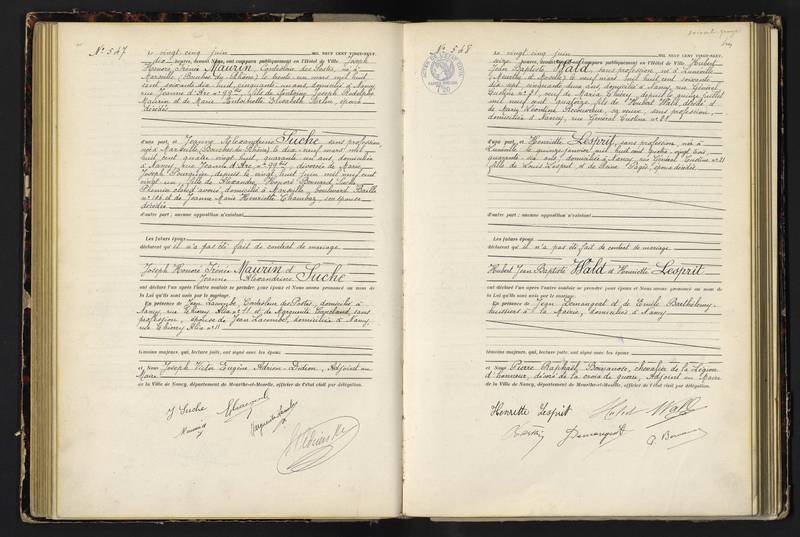 N° 547
Le vingt cinq juin MIL NEUF CENT VINGT-NEUF,
dix heures, devant Nous, ont comparu publiquement en l'Hôtel de Ville Joseph
Honoré Irénée Maurin, Contrôleur des Postes, né à
Marseille (Bouches du Rhône) le trente un mars mil huit
cent soixante dix huit, cinquante un ans, domicilié à Nancy,
rue Jeanne d'Arc n° 99 fils de Antoine Joseph Rodolphe
Maurin et de Marie Elisabeth époux
décédés
d'une part et Jeanne Alexandrine Suche sans profession,
née à Marseille (Bouches du Rhône) le dix neuf mars mil
huit cent quatre vingt huit, quarante un ans, domiciliée
à Nancy, rue Jeanne d'Arc n° 99 divorcée de Marie
Joseph depuis le vingt huit juin mil neuf cent
vingt un, fille de Alexandre Honoré Bernard Suche
domicilié à Marseille, boulevard Baille
n° 106 et de Jeanne Marie Henriette Chambaz, son épouse
décédée
d'autre part ; aucune opposition n'existant
Les futurs époux
déclarent qu'il n'a pas été fait de contrat de mariage.
Joseph Honoré Irénée Maurin et
Jeanne Alexandrine Suche
ont déclaré l'un après l'autre vouloir se prendre pour époux et Nous avons prononcé au nom de
la Loi qu'ils sont unis par le mariage.
En présence de Jean Contrôleur des Postes, domicilié à
Nancy, rue Thierry Alix n° 11 et de Marguerite sans
profession, épouse de Jean domiciliée à Nancy,
rue Thierry Alix n° 11
témoins majeurs, qui, lecture faite, ont signé avec les époux
et Nous Joseph Victor Eugène Adrien Didion, Adjoint au
Maire
de la Ville de Nancy, département de Meurthe-et-Moselle, officier de l'état civil par délégation.
J Suche
Maurin
N° 548
Le vingt cinq juin MIL NEUF CENT VINGT-NEUF,
seize heures, devant Nous, ont comparu publiquement en l'Hôtel de Ville Hubert
Jean Baptiste Wald, sans profession, né à Lunéville
(Meurthe et Moselle) le neuf mars mil huit cent soixante
dix sept, cinquante deux ans, domicilié à Nancy, rue Général
Custine n° 21, veuf de Maria Thiéry, depuis le quinze juillet
mil neuf cent quatorze fils de Hubert Wald, décédé et
de Mary Léontine sa veuve, sans profession,
domiciliée à Nancy, rue Général Custine n° 21
d'une part, et Henriette Lesprit, sans profession, née à
Lunéville le quinze janvier mil huit cent quatre vingt trois,
quarante six ans, domiciliée à Nancy, rue Général Custine n° 21
fille de Louis Lesprit et de Marie Pagès, époux décédés
d'autre part ; aucune opposition n'existant
Les futurs époux
déclarent qu'il n'a pas été fait de contrat de mariage.
Hubert Jean Baptiste Wald et Henriette Lesprit
ont déclaré l'un après l'autre vouloir se prendre pour époux et Nous avons prononcé au nom de
la Loi qu'ils sont unis par le mariage.
En présence de Jean Demangeot et de Emile Barthélemy,
huissiers à la Mairie, domiciliés à Nancy
témoins majeurs, qui, lecture faite, ont signé avec les époux
et Nous Pierre Raphaël chevalier de la Légion
d'honneur, décoré de la croix de guerre, Adjoint au Maire
de la Ville de Nancy, département de Meurthe-et-Moselle, officier de l'état civil par délégation.
Henriette Lesprit Wald
Demangeot